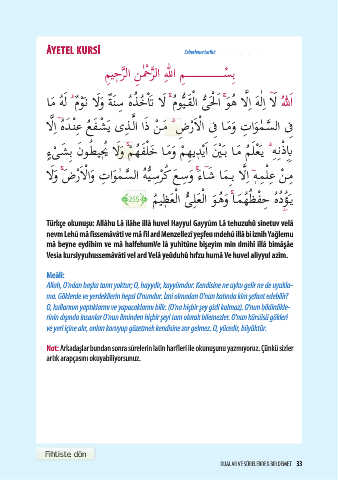 ÂYETEL KURSÎ
بِسْمِ اللهِ الرَّحْمٰنِ الرَّحِيمِ
اَللهُ لَآ اِلٰهَ اِلَّا هُوَۚ اَلْحَيُّ الْقَيُّومُۚ لَا تَأْخُذُهُ سِنَةٌ وَلَا نَوْمٌۜ لَهُ مَا
فِي السَّمٰوَاتِ وَمَا فِي الْاَرْضِۜ مَنْ ذَا الَّذِي يَشْفَعُ عِنْدَهُٓ اِلَّا
بِاِذْنِهِۜ يَعْلَمُ مَا بَيْنَ اَيْدِيهِمْ وَمَا خَلْفَهُمْۚ وَلَا يُحِيطُونَ بِشَيْءٍ
مِنْ عِلْمِهِٓ اِلَّا بِمَا شَٓاءَۚ وَسِعَ كُرْسِيُّهُ السَّمٰوَاتِ وَالْاَرْضَۚ وَلَا
يَؤُ۫دُهُ حِفْظُهُمَاۚ وَهُوَ الْعَلِيُّ الْعَظِيمُ ﴿255﴾
Türkçe okunuşu: Allâhu Lâ ilâhe illâ huvel Hayyul Gayyûm Lâ tehuzuhû sinetuv velâ
nevm Lehû mâ fissemâvâti ve mâ fil ard Menzellezî yeşfeu ındehû illâ bi iznih Yağlemu
mâ beyne eydihim ve mâ halfehumVe lâ yuhitûne bişeyim min ilmihî illâ bimâşâe
Vesia kursiyyuhussemâvâti vel ard Velâ yeûduhû hıfzu humâ Ve huvel aliyyul azîm.
Meâli:
Allah, O'ndan başka tanrı yoktur; O, hayydir, kayyûmdur. Kendisine ne uyku gelir ne de uyukla-
ma. Göklerde ve yerdekilerin hepsi O'nundur. İzni olmadan O'nun katında kim şefaat edebilir?
O, kullarının yaptıklarını ve yapacaklarını bilir. (O'na hiçbir şey gizli kalmaz). O'nun bildirdikle-
rinin dışında insanlar O'nun ilminden hiçbir şeyi tam olarak bilemezler. O'nun kürsüsü gökleri
ve yeri içine alır, onları koruyup gözetmek kendisine zor gelmez. O, yücedir, büyüktür.
Not: Arkadaşlar bundan sonra sürelerin latin harfleri ile okunuşunu yazmıyoruz. Çünkü sizler
artık arapçasını okuyabiliyorsunuz.
Fihriste dön
33